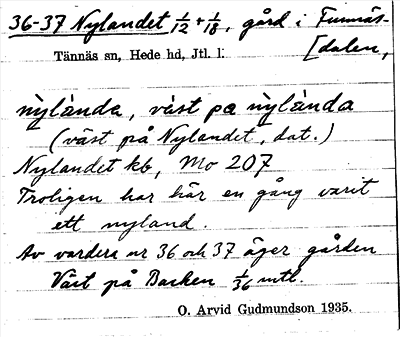 36-37 Nylandet 1/12 + 1/18, gård i Funnäs-
[dalen,
Tännäs sn, Hede hd, Jtl. l.
nỳlànda, väst pa nỳlànda
(väst på Nylandet, dat.)
Nylandet kb, Mo 207
Troligen har här en gång varit
ett nyland.
Av vardera nr 36 och 37 äger gården
Väst på Backen 1/36 mtl.
O. Arvid Gudmundson 1935.